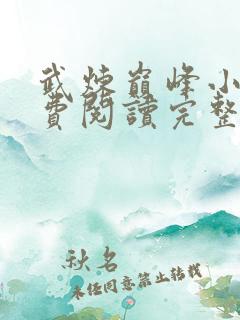 武煉巔峰小
費閱讀完整
秋名
未經同意禁止轉載